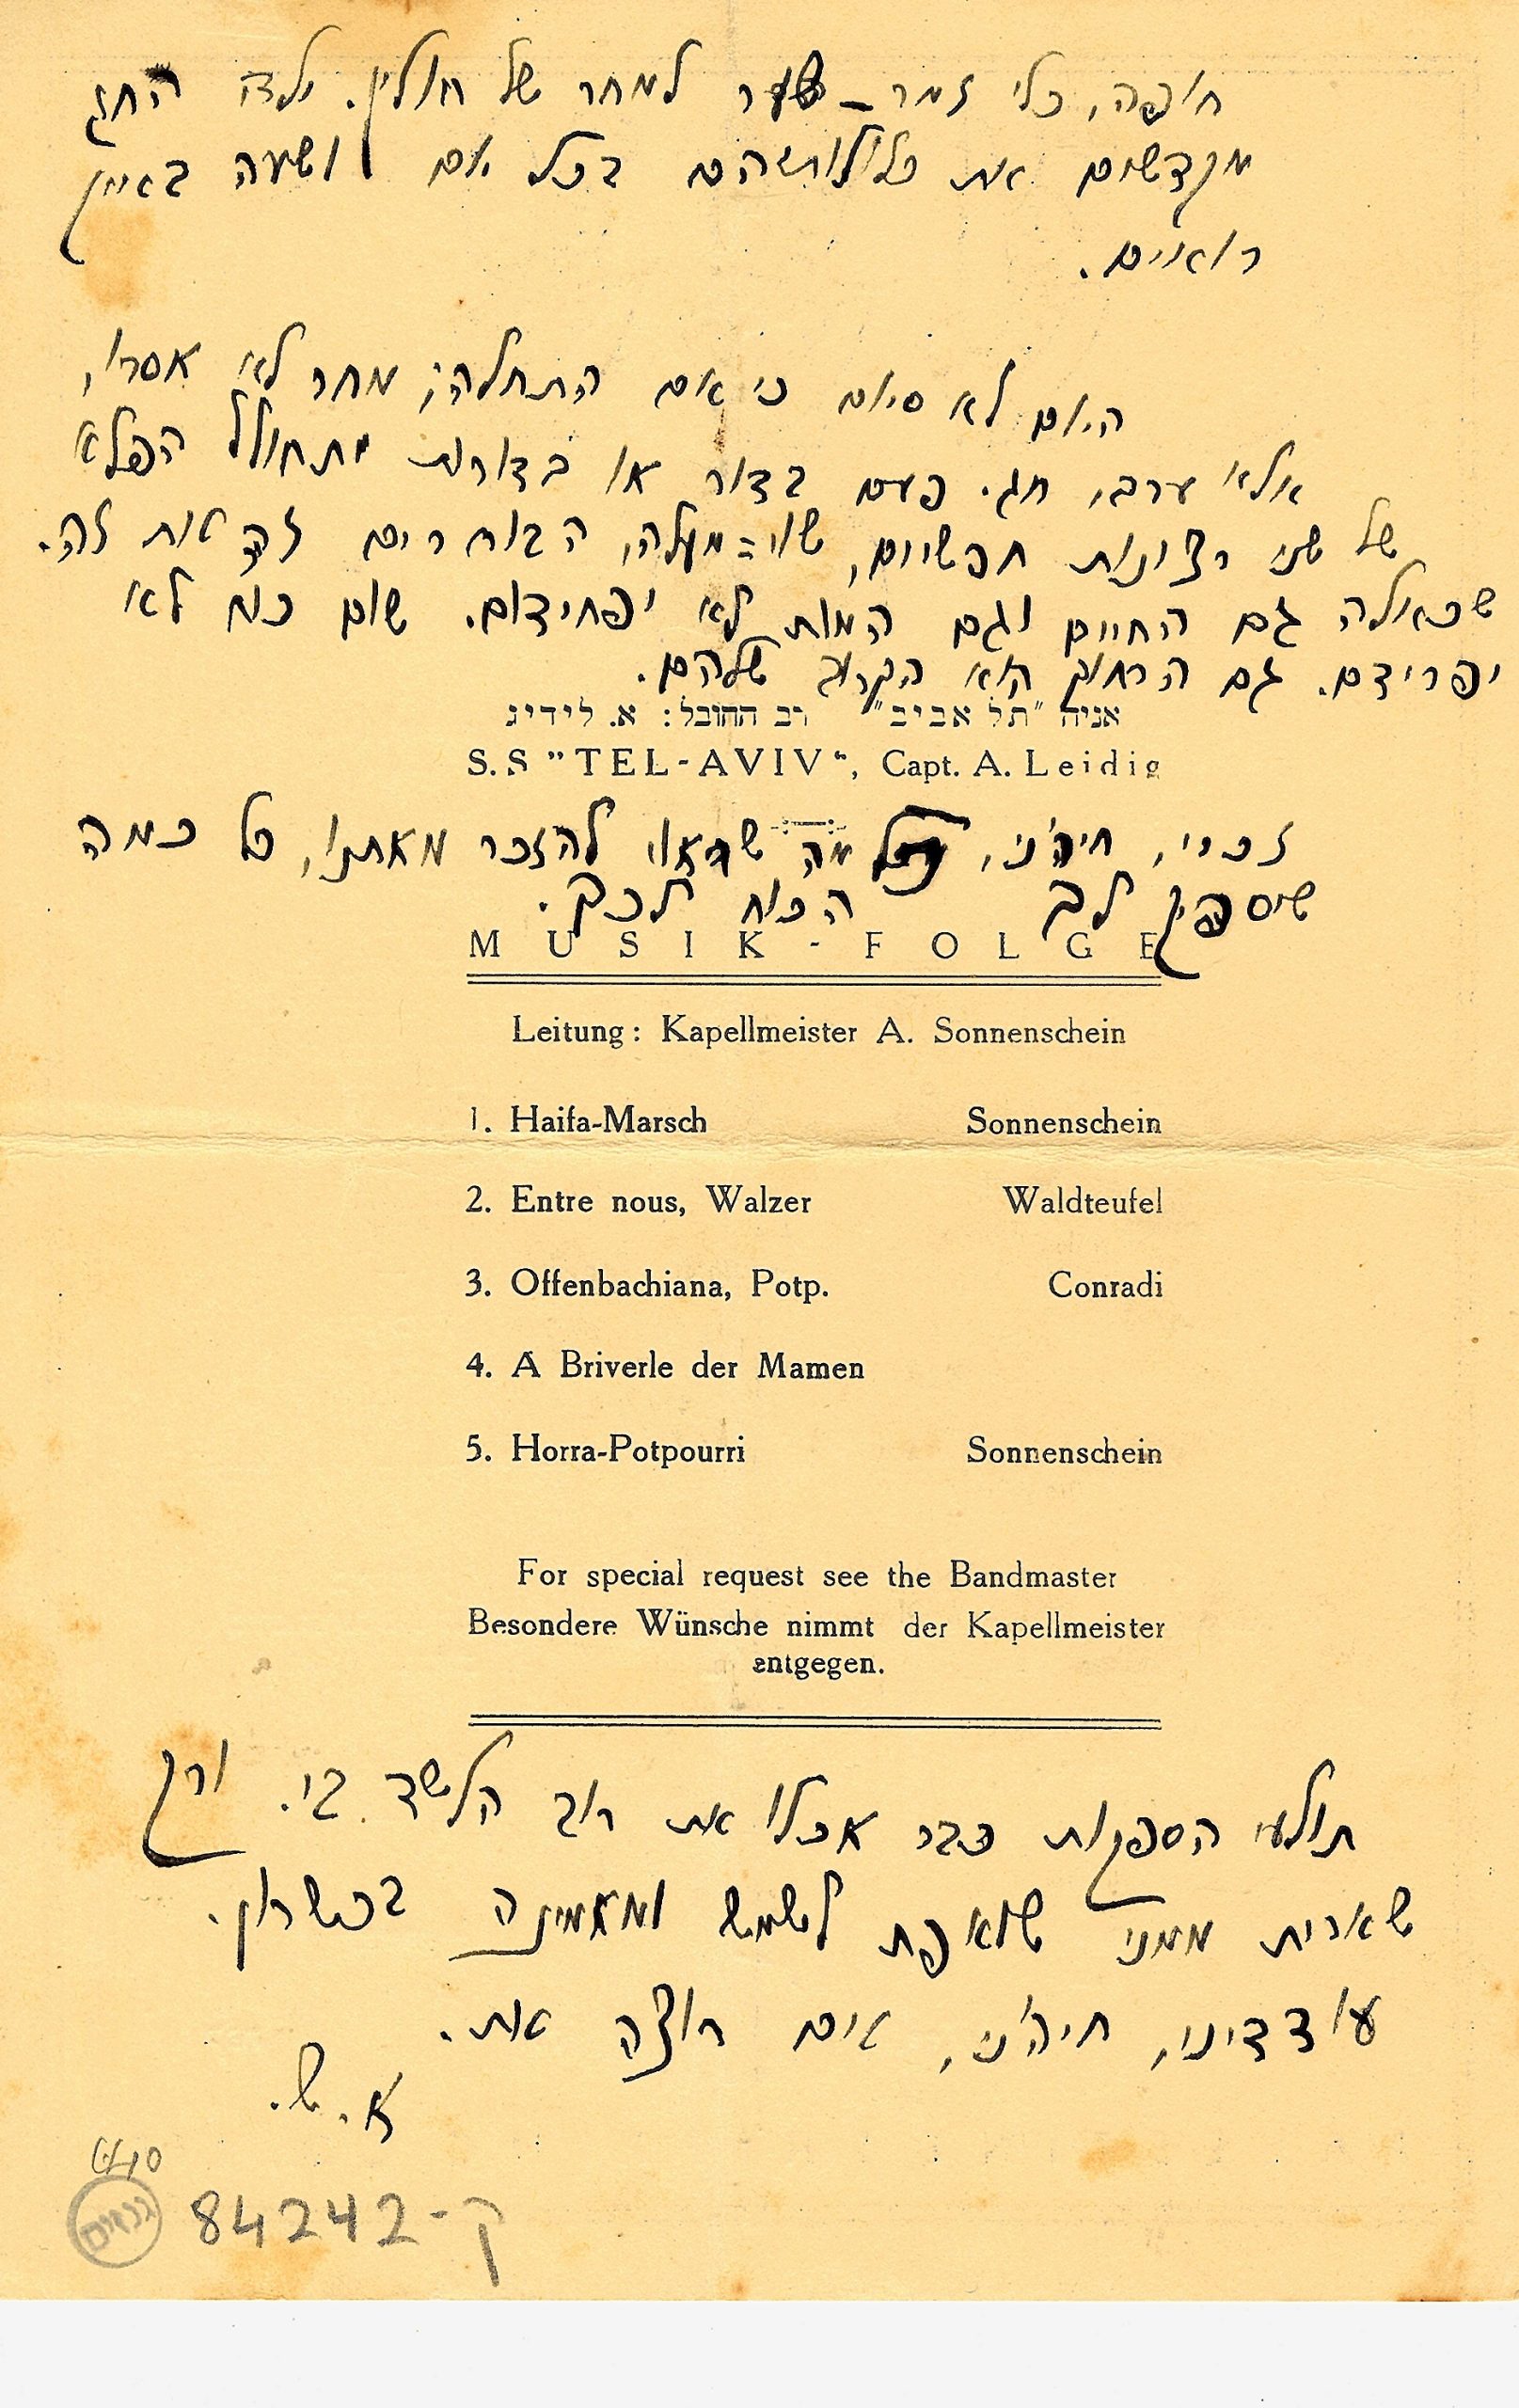 חופה, כלי זמר – שער למחר של חולין. ילדי החג
מקדשים את כלולותיהם בכל יום ושעה באין
רואים.
היום לא סיום כי אם התחלה; מחר לא אסרו,
אלא ערב, חג. פעם בדור או בדורות יתחולל הפלא
של שני רצונות חפשיים, שוי=מעלה, הבוחרים זה את זה.
שכאלה גם החיים וגם המות לא יפחידום. שום כוח לא
יפרידם. גם הרחוק הוא הקרוב שלהם.
אניה "תל אביב" רב החובל: א. לידיג
S.S "TEL-AVIV", Capt. A. Leidig
זכרי, חיה'ני, מה שראוי להזכר מאתנו, כל כמה
שיספיק לב הכוח לכך.
MUSIK-FOLGE
Leitung: Kapellmeister A. Sonnenschein
1. Haifa-Marsch Sonnenschein
2. Entre nous, Walzer Waldteufel
3. Offenbachiana, Potp. Conradi
4. A Briverle der Mamen
5. Horra-Potpourri Sonnenschein
For special request see the Bandmaster
Besondere Wünsche nimmt der Kapellmeister
entgegen.
תולעי הספקות כבר אכלו את רוב הלשד בי. ורק
שארית ממני שואפת לשמש ומאמינה בכשרון.
עודדיני, חיה'ני, אם רוצה את.
א. ש.
ק-84242
גנזים